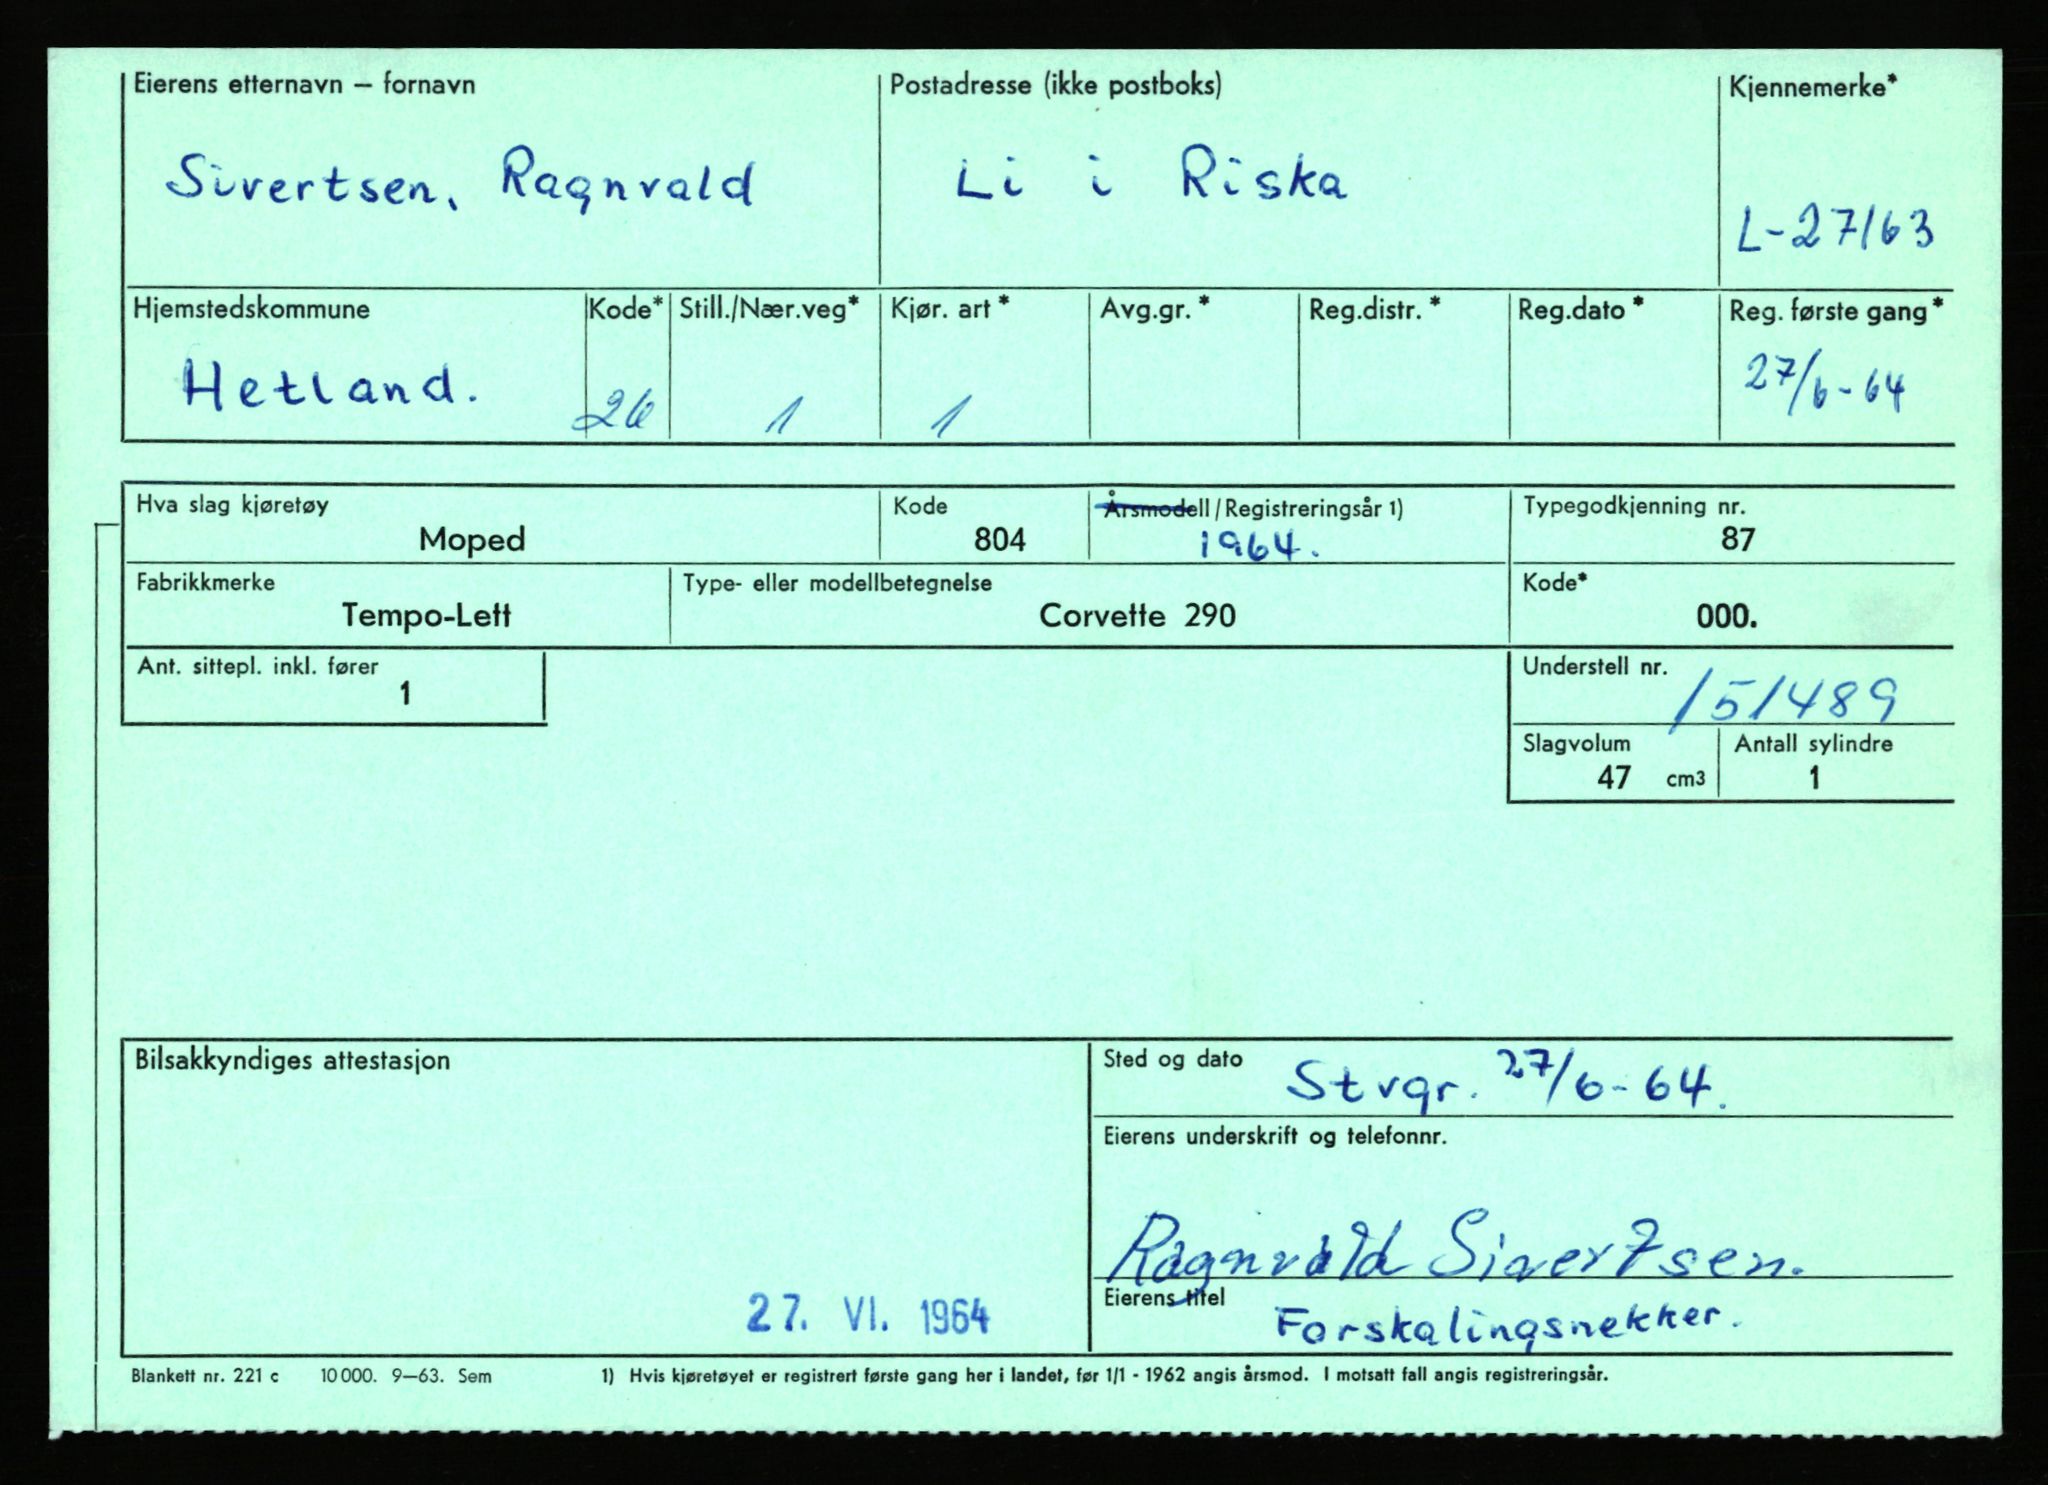 Eierens etternavn – fornavn
Sivertsen, Ragnvald
Postadresse (ikke postboks)
Li i Riska
Kjennemerke*
L-27163
Hjemstedskommune
Hetland.
Kode*
26
Still./Nær.veg*
1
Kjør. art*
1
Avg.gr.*
Reg.distr.*
Reg.dato*
Reg. første gang*
27/6-64
Hva slag kjøretøy
Moped
Kode
804
Årsmodell/Registreringsår 1)
1964.
Typegodkjenning nr.
87
Fabrikkmerke
Tempo-Lett
Type- eller modellbetegnelse
Corvette 290
Kode*
000.
Ant. sittepl. inkl. fører
1
Understell nr.
151489
Slagvolum
47 cm3
Antall sylindre
1
Bilsakkyndiges attestasjon
27. VI. 1964
Sted og dato
Stvgr. 27/6-64.
Eierens underskrift og telefonnr.
Ragnvald Sivertsen.
Eierens titel
Forskalingsnekker.
Blankett nr. 221 c 10 000. 9–63. Sem
1) Hvis kjøretøyet er registrert første gang her i landet, før 1/1 - 1962 angis årsmod. I motsatt fall angis registreringsår.